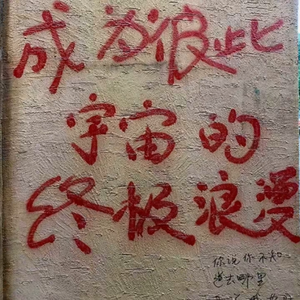 成为彼此
宇宙的
终极浪漫
你说你不知
道去哪里